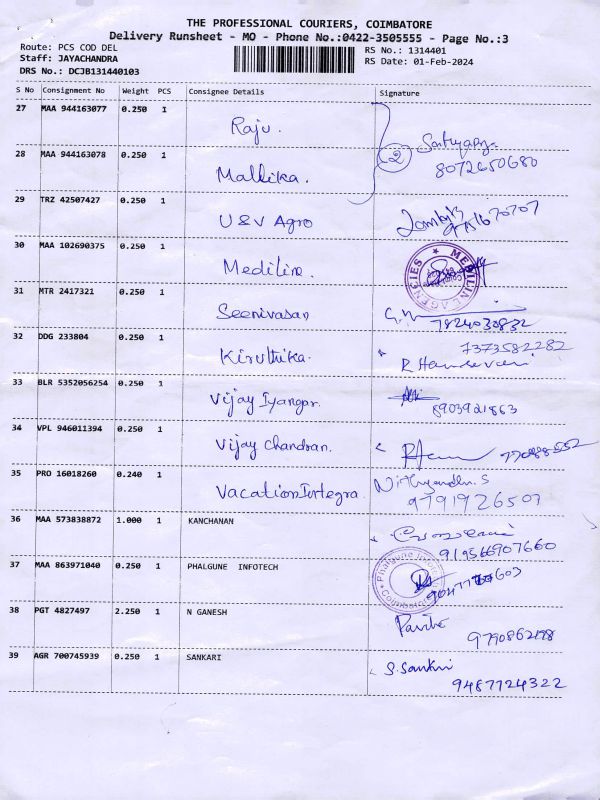 THE PROFESSIONAL COURIERS, COIMBATORE
Delivery Runsheet - MO - Phone No.:0422-3505555 - Page No.:3
Route: PCS COD DEL
RS No.: 1314401
Staff: JAYACHANDRA
RS Date: 01-Feb-2024
DRS No.: DCJB131440103
S No Consignment No Weight PCS Consignee Details Signature
27 MAA 944163077 0.250 1 Raju.
28 MAA 944163078 0.250 1 Mallika. 2 8072650680
29 TRZ 42507427 0.250 1 U&V Agro
30 MAA 102690375 0.250 1 Mediline. MEDILINE AGENCIES
31 MTR 2417321 0.250 1 Seenivasan 7824030832
32 DDG 233804 0.250 1 Kiruthika. 7373582282
33 BLR 5352056254 0.250 1 Vijay Iyangar. 8903921863
34 VPL 946011394 0.250 1 Vijay Chandran.
35 PRO 16018260 0.240 1 Vacation Integra 9791926507
36 MAA 573838872 1.000 1 KANCHANAN 919566907660
37 MAA 863971040 0.250 1 PHALGUNE INFOTECH Phalgune Infotech Coimbatore
38 PGT 4827497 2.250 1 N GANESH
39 AGR 700745939 0.250 1 SANKARI S. Sankari 9487724322